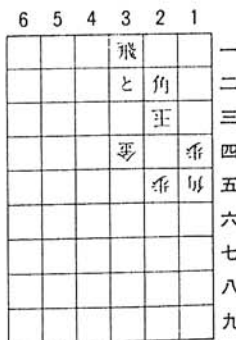 6 5 4 3 2 1
飛 一
と 角 二
玉 三
金 歩 四
歩 角 五
六
七
八
九